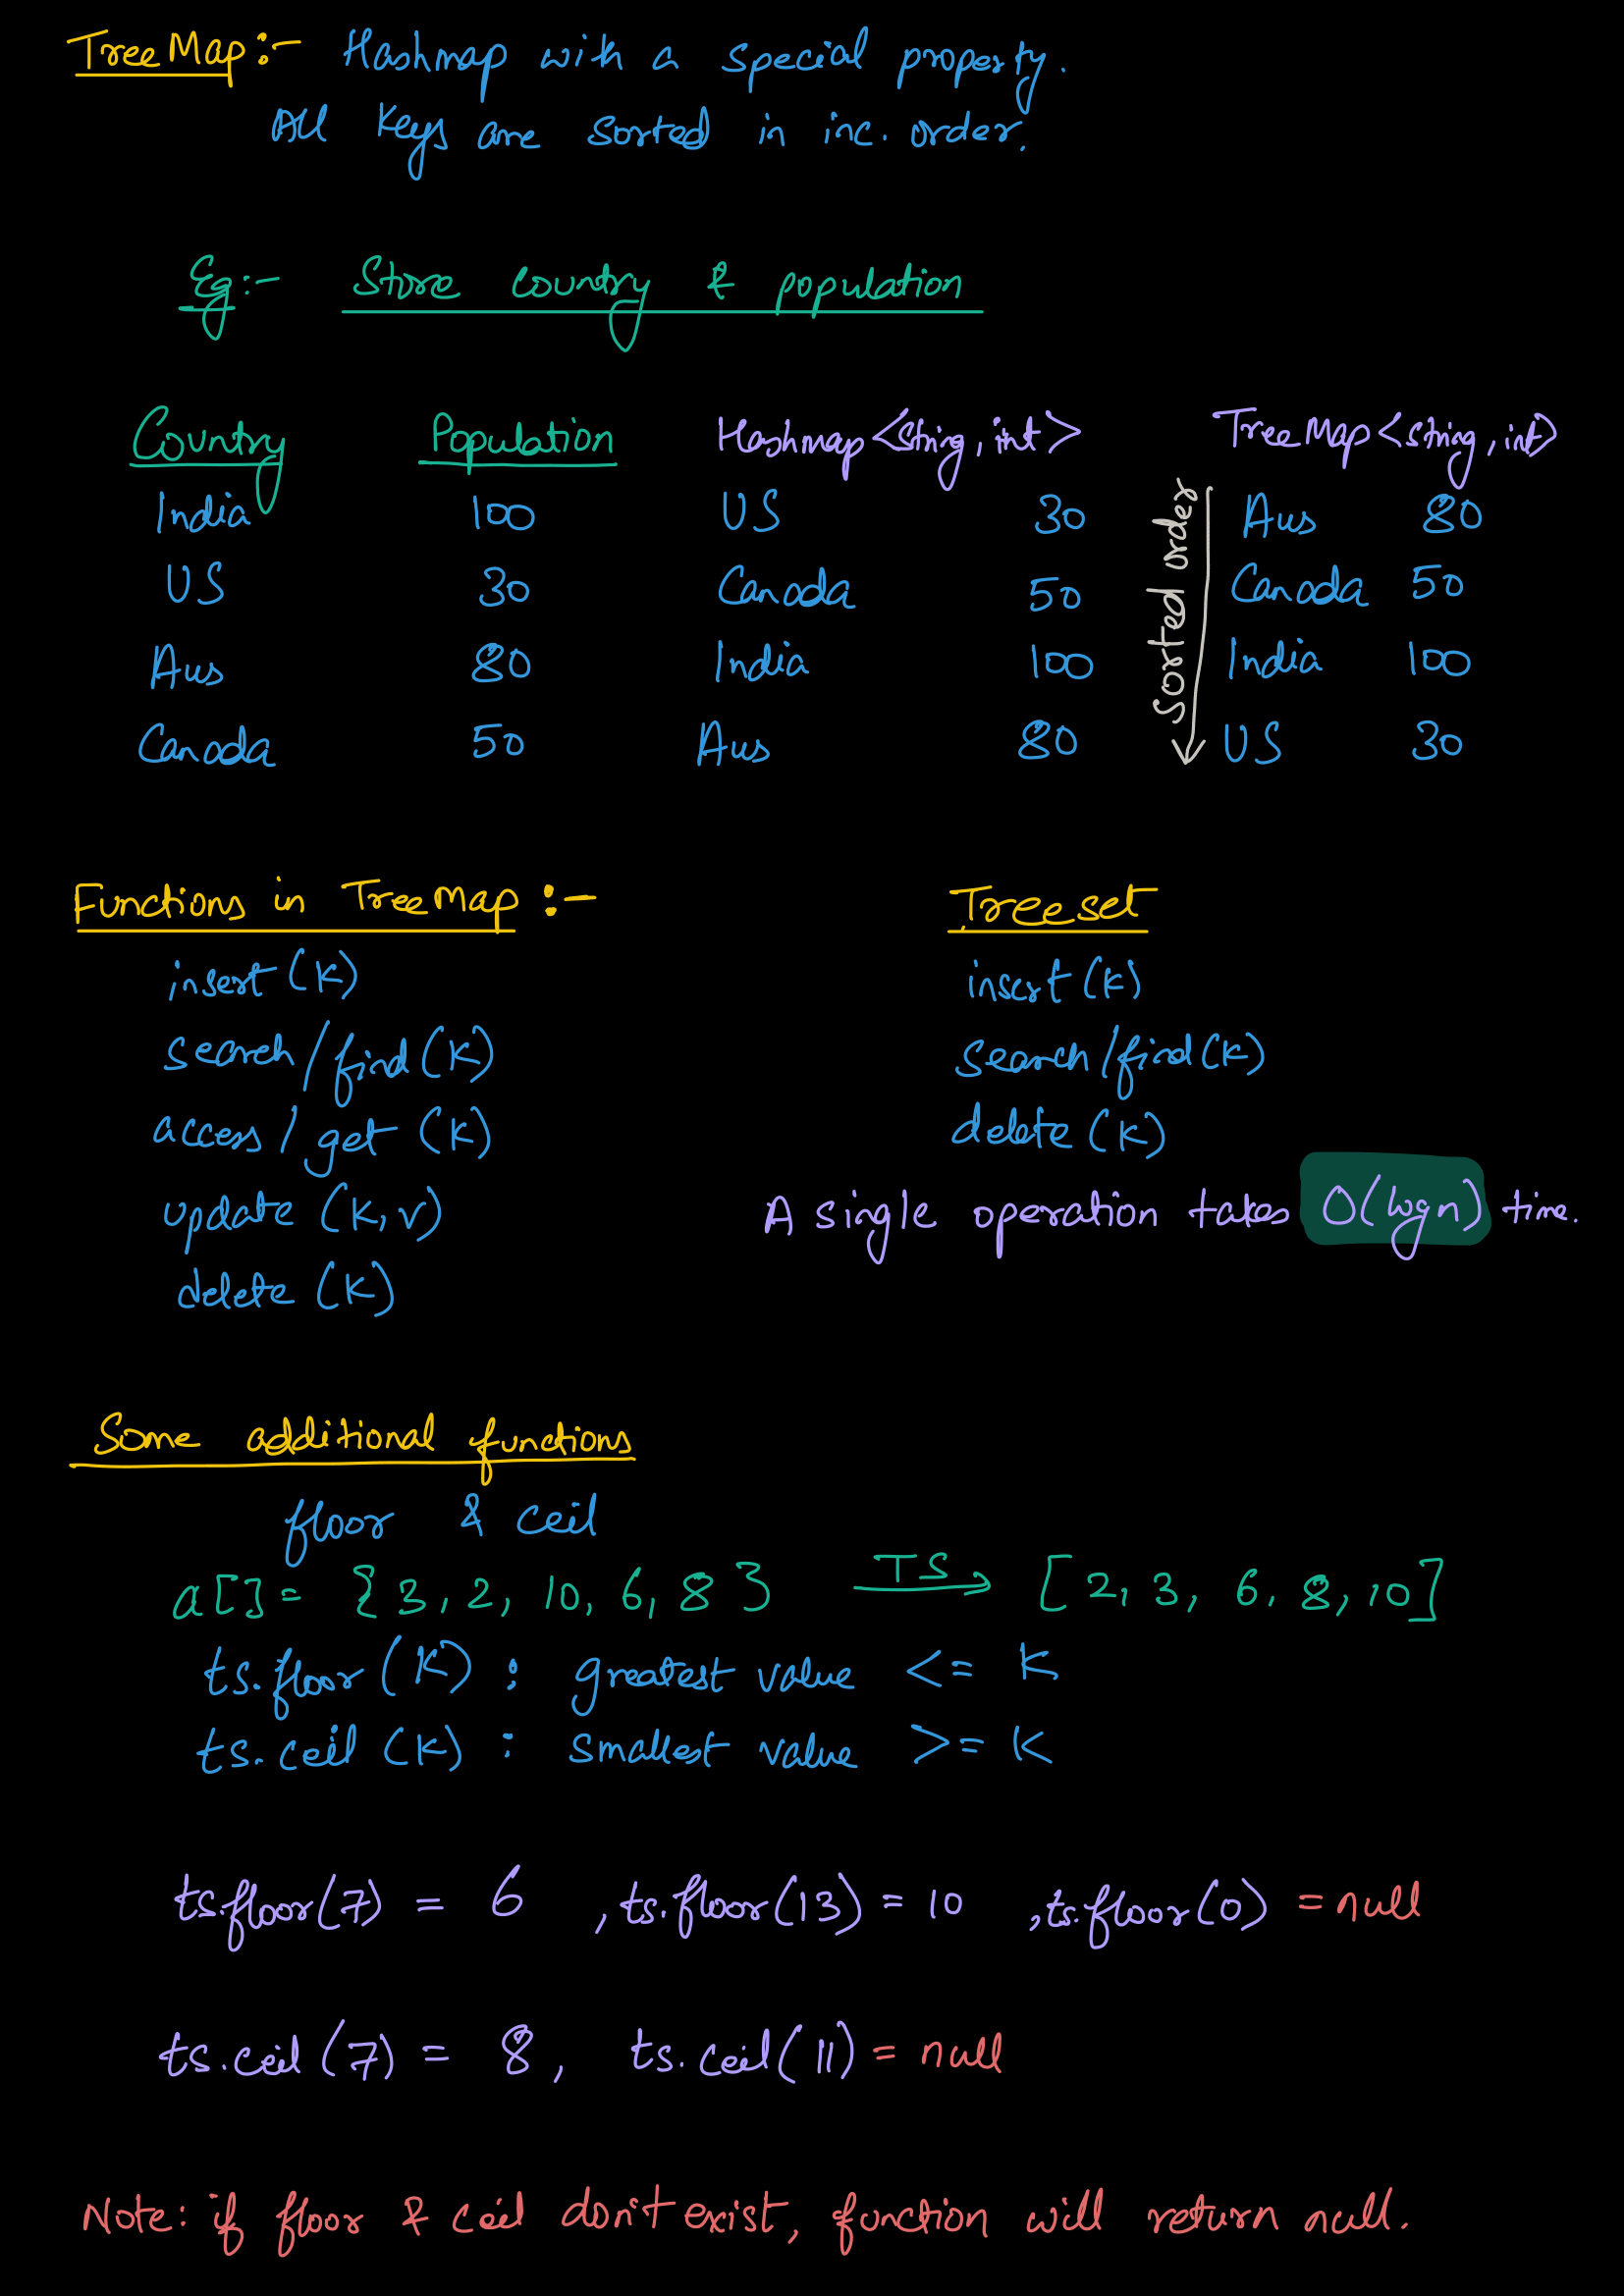 TreeMap:- Hashmap with a special property.
All keys are sorted in inc. order.
Eg:- Store country & population
Country Population Hashmap<string, int> TreeMap<string, int>
India 100 US 30 Aus 80
US 30 Canada 50 Canada 50
Aus 80 India 100 India 100
Canada 50 Aus 80 US 30
Sorted order
Functions in TreeMap :- Treeset
insert (K) insert (K)
search/find (K) search/find (K)
access/get (K) delete (K)
update (K, v) A single operation takes O(log n) time.
delete (K)
Some additional functions
floor & ceil
a[] = {3, 2, 10, 6, 8} TS → [2, 3, 6, 8, 10]
ts.floor (K) : greatest value <= K
ts.ceil (K) : smallest value >= K
ts.floor(7) = 6 , ts.floor(13) = 10 , ts.floor(0) = null
ts.ceil (7) = 8, ts.ceil(11) = null
Note: if floor & ceil don't exist, function will return null.